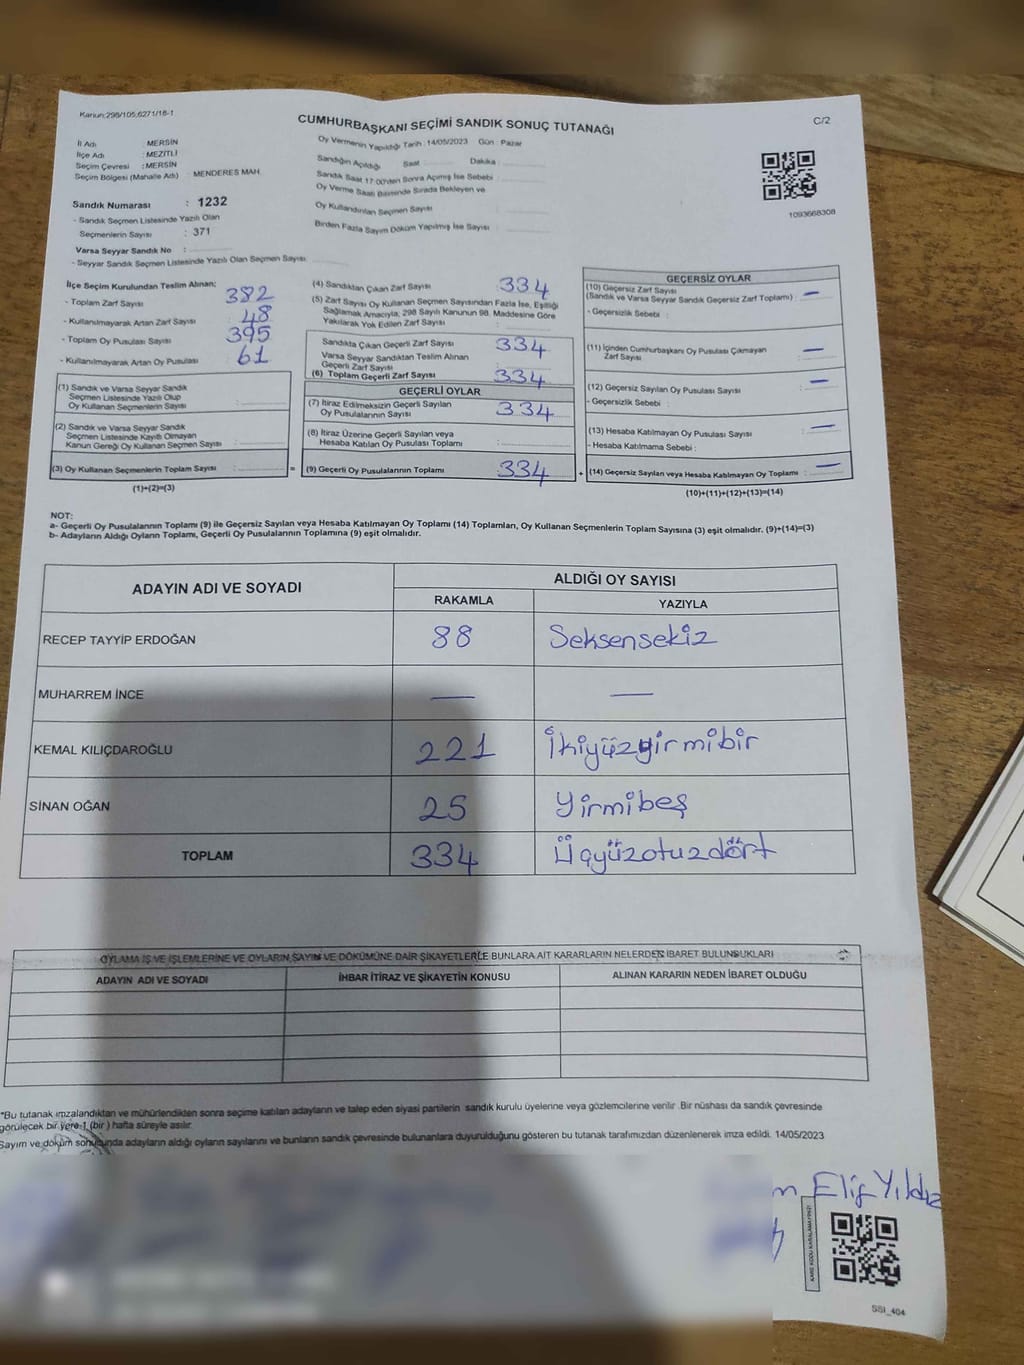 Kanun:298/105;6271/18-1
CUMHURBAŞKANI SEÇİMİ SANDIK SONUÇ TUTANAĞI
C/2
İl Adı : MERSİN
İlçe Adı : MEZİTLİ
Seçim Çevresi : MERSİN
Seçim Bölgesi (Mahalle Adı) : MENDERES MAH.
Oy Vermenin Yapıldığı Tarih :14/05/2023 Gün : Pazar
Sandığın Açıldığı Saat Dakika :
Sandık Saat 17:00'den Sonra Açılmış İse Sebebi :
Oy Verme Saati Bitiminde Sırada Bekleyen ve
Oy Kullandırılan Seçmen Sayısı :
Birden Fazla Sayım Döküm Yapılmış İse Sayısı :
1093668308
Sandık Numarası : 1232
- Sandık Seçmen Listesinde Yazılı Olan
Seçmenlerin Sayısı : 371
Varsa Seyyar Sandık No :
- Seyyar Sandık Seçmen Listesinde Yazılı Olan Seçmen Sayısı:
İlçe Seçim Kurulundan Teslim Alınan;
- Toplam Zarf Sayısı : 382
- Kullanılmayarak Artan Zarf Sayısı : 48
- Toplam Oy Pusulası Sayısı : 395
- Kullanılmayarak Artan Oy Pusulası : 61
(1) Sandık ve Varsa Seyyar Sandık
Seçmen Listesinde Yazılı Olup
Oy Kullanan Seçmenlerin Sayısı :
(2) Sandık ve Varsa Seyyar Sandık
Seçmen Listesinde Kayıtlı Olmayan
Kanun Gereği Oy Kullanan Seçmen Sayısı :
(3) Oy Kullanan Seçmenlerin Toplam Sayısı :
(1)+(2)=(3)
(4) Sandıktan Çıkan Zarf Sayısı : 334
(5) Zarf Sayısı Oy Kullanan Seçmen Sayısından Fazla İse, Eşitliği
Sağlamak Amacıyla, 298 Sayılı Kanunun 98. Maddesine Göre
Yakılarak Yok Edilen Zarf Sayısı :
Sandıkta Çıkan Geçerli Zarf Sayısı : 334
Varsa Seyyar Sandıktan Teslim Alınan
Geçerli Zarf Sayısı
(6) Toplam Geçerli Zarf Sayısı : 334
GEÇERLİ OYLAR
(7) İtiraz Edilmeksizin Geçerli Sayılan
Oy Pusulalarının Sayısı : 334
(8) İtiraz Üzerine Geçerli Sayılan veya
Hesaba Katılan Oy Pusulası Toplamı :
= (9) Geçerli Oy Pusulalarının Toplamı : 334
GEÇERSİZ OYLAR
(10) Geçersiz Zarf Sayısı
(Sandık ve Varsa Seyyar Sandık Geçersiz Zarf Toplamı) : —
- Geçersizlik Sebebi :
(11) İçinden Cumhurbaşkanı Oy Pusulası Çıkmayan
Zarf Sayısı : —
(12) Geçersiz Sayılan Oy Pusulası Sayısı : —
- Geçersizlik Sebebi :
(13) Hesaba Katılmayan Oy Pusulası Sayısı : —
- Hesaba Katılmama Sebebi :
+ (14) Geçersiz Sayılan veya Hesaba Katılmayan Oy Toplamı : —
(10)+(11)+(12)+(13)=(14)
NOT:
a- Geçerli Oy Pusulalarının Toplamı (9) ile Geçersiz Sayılan veya Hesaba Katılmayan Oy Toplamı (14) Toplamları, Oy Kullanan Seçmenlerin Toplam Sayısına (3) eşit olmalıdır. (9)+(14)=(3)
b- Adayların Aldığı Oyların Toplamı, Geçerli Oy Pusulalarının Toplamına (9) eşit olmalıdır.
ADAYIN ADI VE SOYADI
ALDIĞI OY SAYISI
RAKAMLA YAZIYLA
RECEP TAYYİP ERDOĞAN 88 Seksensekiz
MUHARREM İNCE — —
KEMAL KILIÇDAROĞLU 221 İkiyüzyirmibir
SİNAN OĞAN 25 Yirmibeş
TOPLAM 334 Üçyüzotuzdört
OYLAMA İŞ VE İŞLEMLERİNE VE OYLARIN SAYIM VE DÖKÜMÜNE DAİR ŞİKAYETLERLE BUNLARA AİT KARARLARIN NELERDEN İBARET BULUNDUKLARI
ADAYIN ADI VE SOYADI İHBAR İTİRAZ VE ŞİKAYETİN KONUSU ALINAN KARARIN NEDEN İBARET OLDUĞU
*Bu tutanak imzalandıktan ve mühürlendikten sonra seçime katılan adayların ve talep eden siyasi partilerin sandık kurulu üyelerine veya gözlemcilerine verilir .Bir nüshası da sandık çevresinde
görülecek bir yere 1 (bir ) hafta süreyle asılır.
Sayım ve döküm sonucunda adayların aldığı oyların sayılarını ve bunların sandık çevresinde bulunanlara duyurulduğunu gösteren bu tutanak tarafımızdan düzenlenerek imza edildi. 14/05/2023
Elif Yıldız
SSI_404